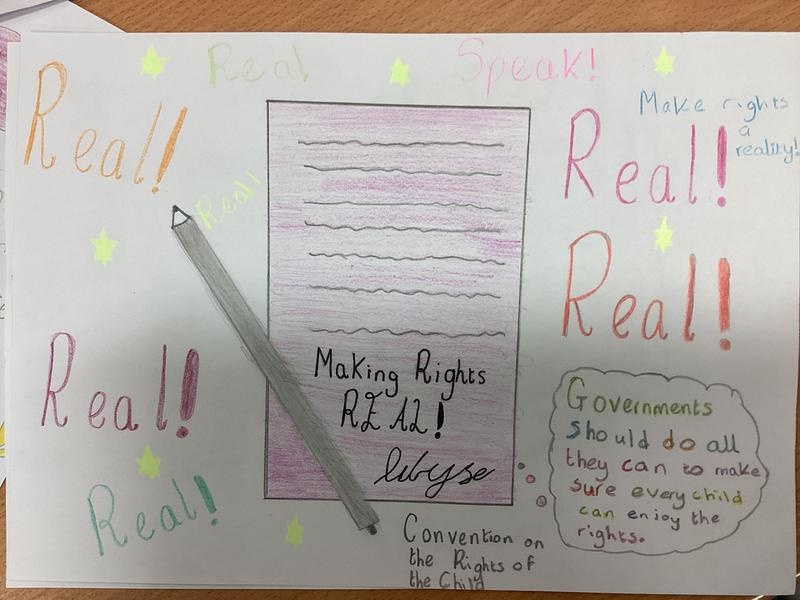 Real
Speak!
Real!
Make rights
a
reality!
Real!
Real!!
Real!
Real!
Real!
Making Rights
REAL!
Governments
should do all
they can to make
sure every child
can enjoy the
rights.
Convention on
the Rights of
the Child